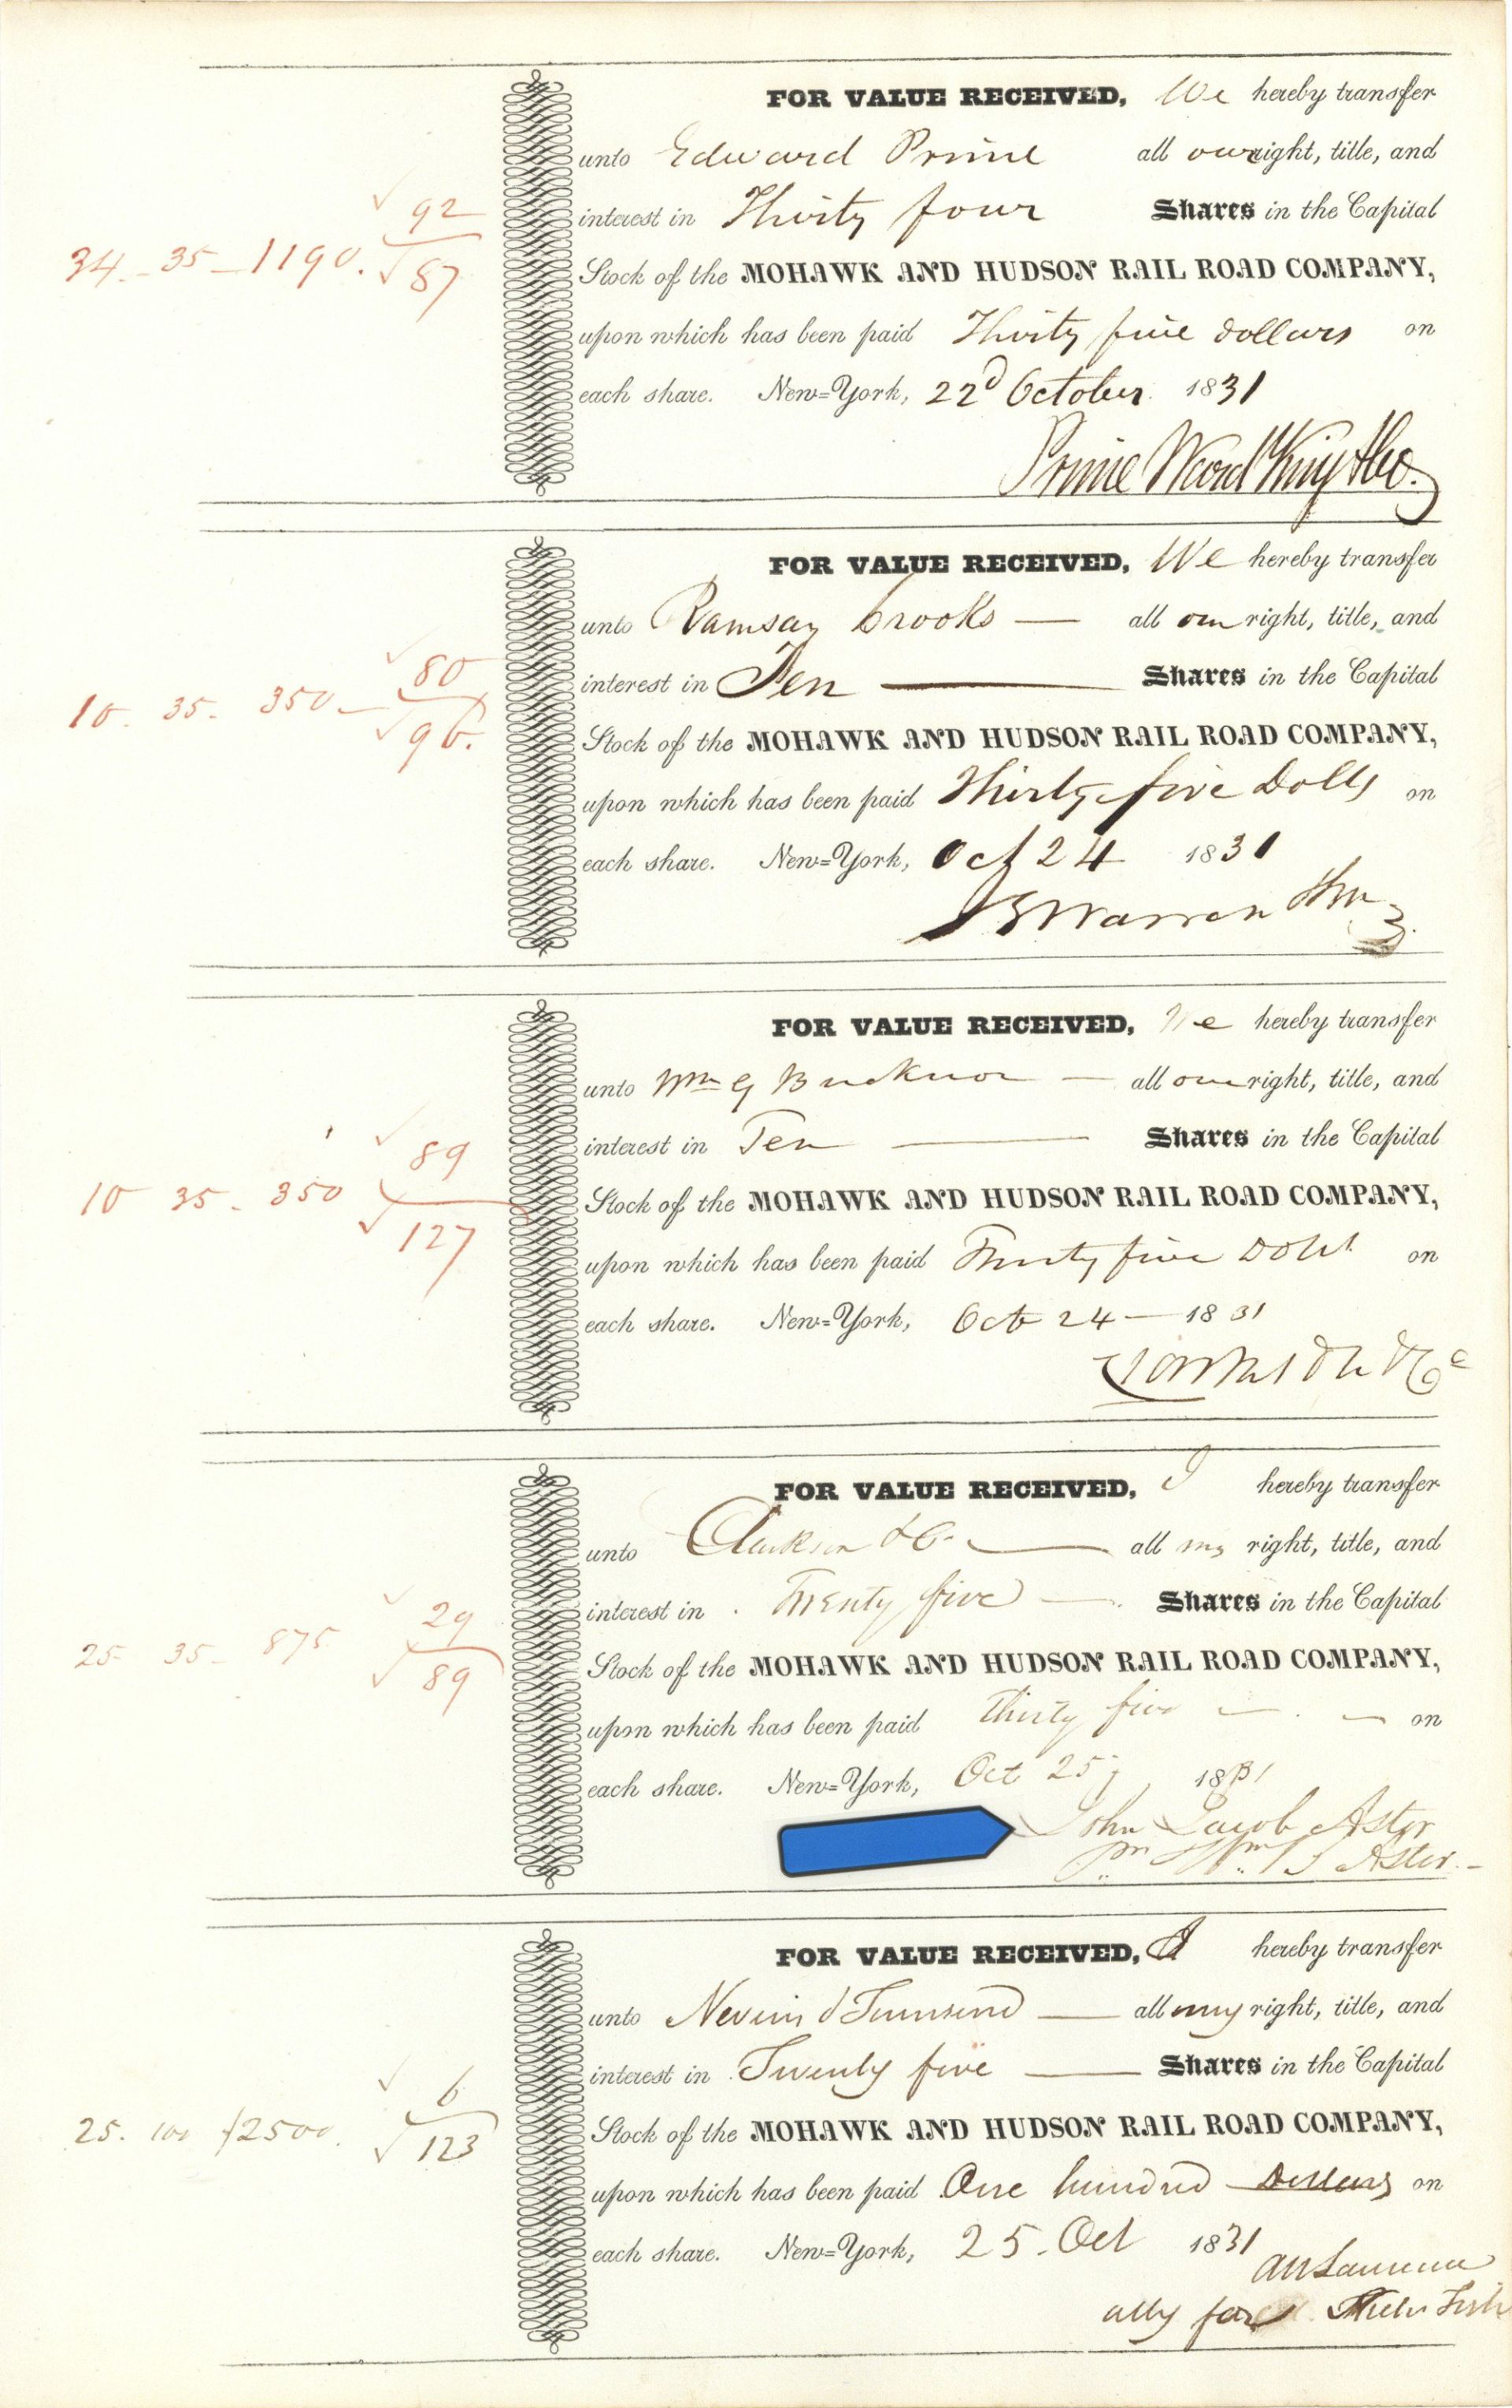 FOR VALUE RECEIVED, We hereby transfer
unto Edward Prime all our right, title, and
interest in Thirty four Shares in the Capital
Stock of the MOHAWK AND HUDSON RAIL ROAD COMPANY,
upon which has been paid Thirty five dollars on
each share. New=York, 22d October 1831
Prime Ward King & Co.
34 - 35 - 1190. √ 92
√ 87
FOR VALUE RECEIVED, We hereby transfer
unto Ramsay Crooks — all our right, title, and
interest in Ten — Shares in the Capital
Stock of the MOHAWK AND HUDSON RAIL ROAD COMPANY,
upon which has been paid Thirty five Dolls on
each share. New=York, Oct 24 1831
Warren
10. 35. 350 — √ 80
√ 96.
FOR VALUE RECEIVED, We hereby transfer
unto Wm G Bucknor — all our right, title, and
interest in Ten — Shares in the Capital
Stock of the MOHAWK AND HUDSON RAIL ROAD COMPANY,
upon which has been paid Thirty five Dolls on
each share. New=York, Oct 24 — 1831
& Co
10 35 - 350 √ 89
√ 127
FOR VALUE RECEIVED, I hereby transfer
unto Clarkson & Co — all my right, title, and
interest in Twenty five — Shares in the Capital
Stock of the MOHAWK AND HUDSON RAIL ROAD COMPANY,
upon which has been paid thirty five — on
each share. New=York, Oct 25, 1831
John Jacob Astor
pr Wm B Astor
25 35 - 875 √ 29
√ 89
FOR VALUE RECEIVED, I hereby transfer
unto Nevins & Townsend — all my right, title, and
interest in Twenty five — Shares in the Capital
Stock of the MOHAWK AND HUDSON RAIL ROAD COMPANY,
upon which has been paid One hundred Dollars on
each share. New=York, 25. Oct 1831
AW Lawrence
atty for Fish
25. 100 $2500. √ 6
√ 123